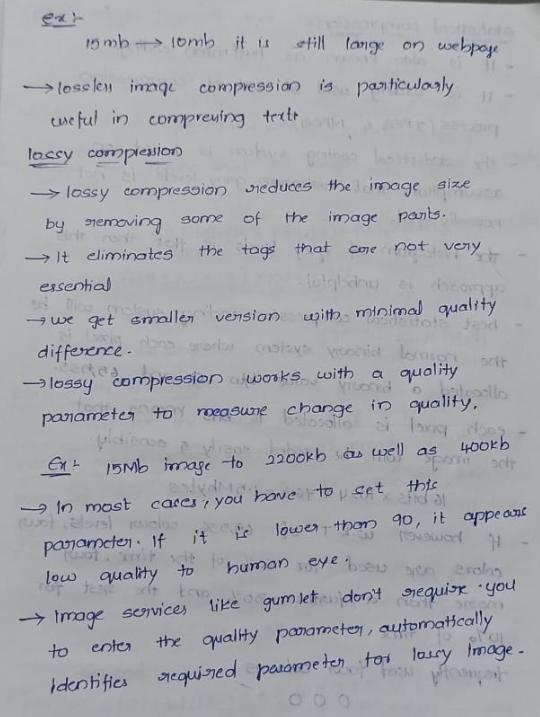 ex:-
15mb → 10mb it is still large on webpage
→ lossless image compression is particularly
useful in compressing texts
lossy compression
→ lossy compression reduces the image size
by removing some of the image parts.
→ It eliminates the tags that are not very
essential
→ we get smaller version with minimal quality
difference.
→ lossy compression works with a quality
parameter to measure change in quality.
Ex:- 15Mb image to 2200kb as well as 400kb
→ In most cases, you have to set this
parameter. If it is lower than 90, it appears
low quality to human eye.
→ Image services like gumlet don't require you
to enter the quality parameter, automatically
identifies required parameter for lossy Image.